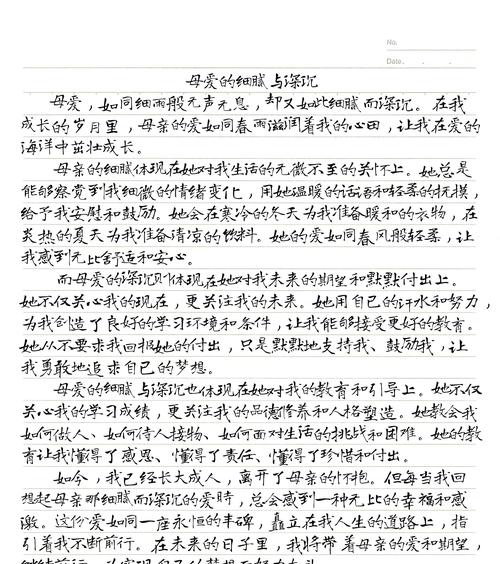 No.
Date.
母爱的细腻与深沉
母爱，如同细雨般无声无息，却又如此细腻而深沉。在我
成长的岁月里，母亲的爱如同春雨滋润着我的心田，让我在爱的
海洋中茁壮成长。
母亲的细腻体现在她对我生活的无微不至的关怀上。她总是
能够察觉到我细微的情绪变化，用她温暖的话语和轻柔的抚摸，
给予我安慰和鼓励。她会在寒冷的冬天为我准备暖和的衣物，在
炎热的夏天为我准备清凉的饮料。她的爱如同春风般轻柔，让
我感到无比舒适和安心。
而母爱的深沉则体现在她对我未来的期望和默默付出上。
她不仅关心我的现在，更关注我的未来。她用自己的汗水和努力，
为我创造了良好的学习环境和条件，让我能够接受更好的教育。
她从不要求我回报她的付出，只是默默地支持我、鼓励我，让
我勇敢地追求自己的梦想。
母爱的细腻与深沉也体现在她对我的教育和引导上。她不仅
关心我的学习成绩，更关注我的品德修养和人格塑造。她教会我
如何做人、如何待人接物、如何面对生活的挑战和困难。她的教
育让我懂得了感恩、懂得了责任、懂得了珍惜和付出。
如今，我已经长大成人，离开了母亲的怀抱。但每当我回
想起母亲那细腻而深沉的爱时，总会感到一种无比的幸福和感
激。这份爱如同一座永恒的丰碑，矗立在我人生的道路上，指
引着我不断前行。在未来的日子里，我将带着母亲的爱和期望，